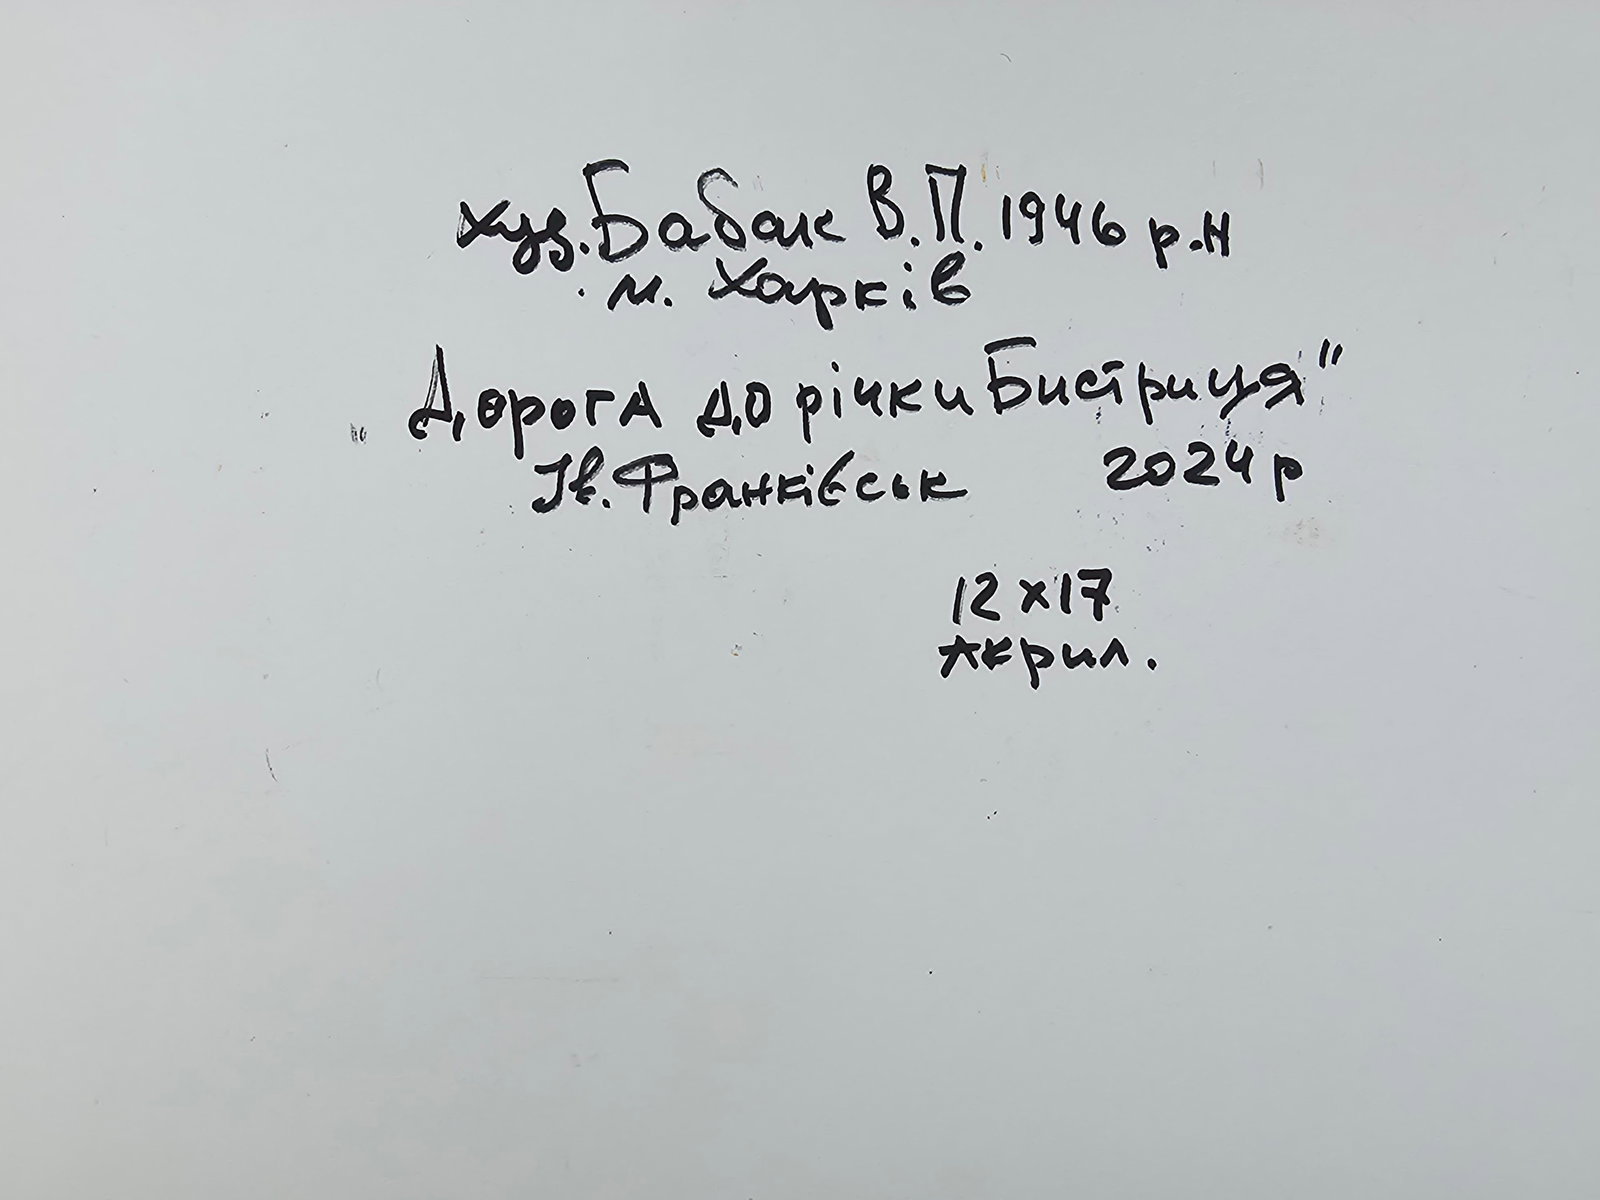 худ. Бабак В.П. 1946 р.н
м. Харків
"Дорога до річки Бистриця"
Ів. Франківськ 2024 р
12 х 17
Акрил.